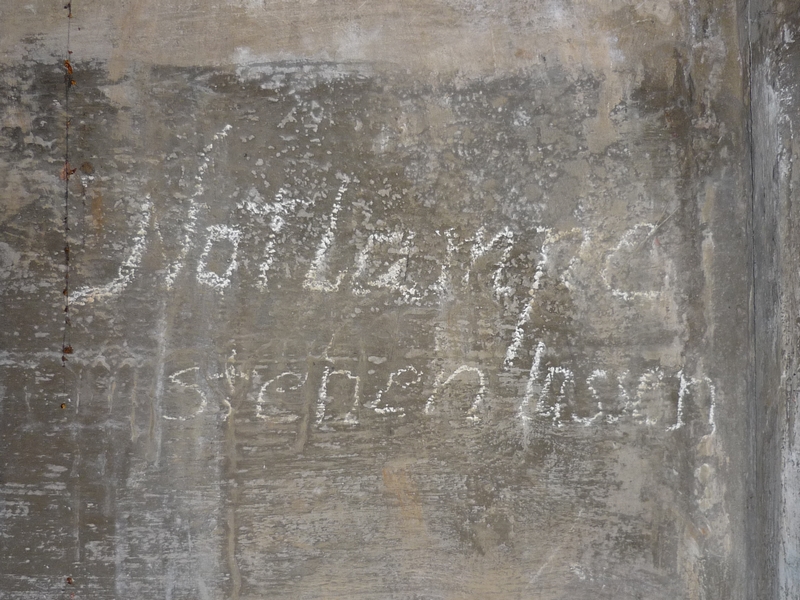 Notlampe
stehen lassen